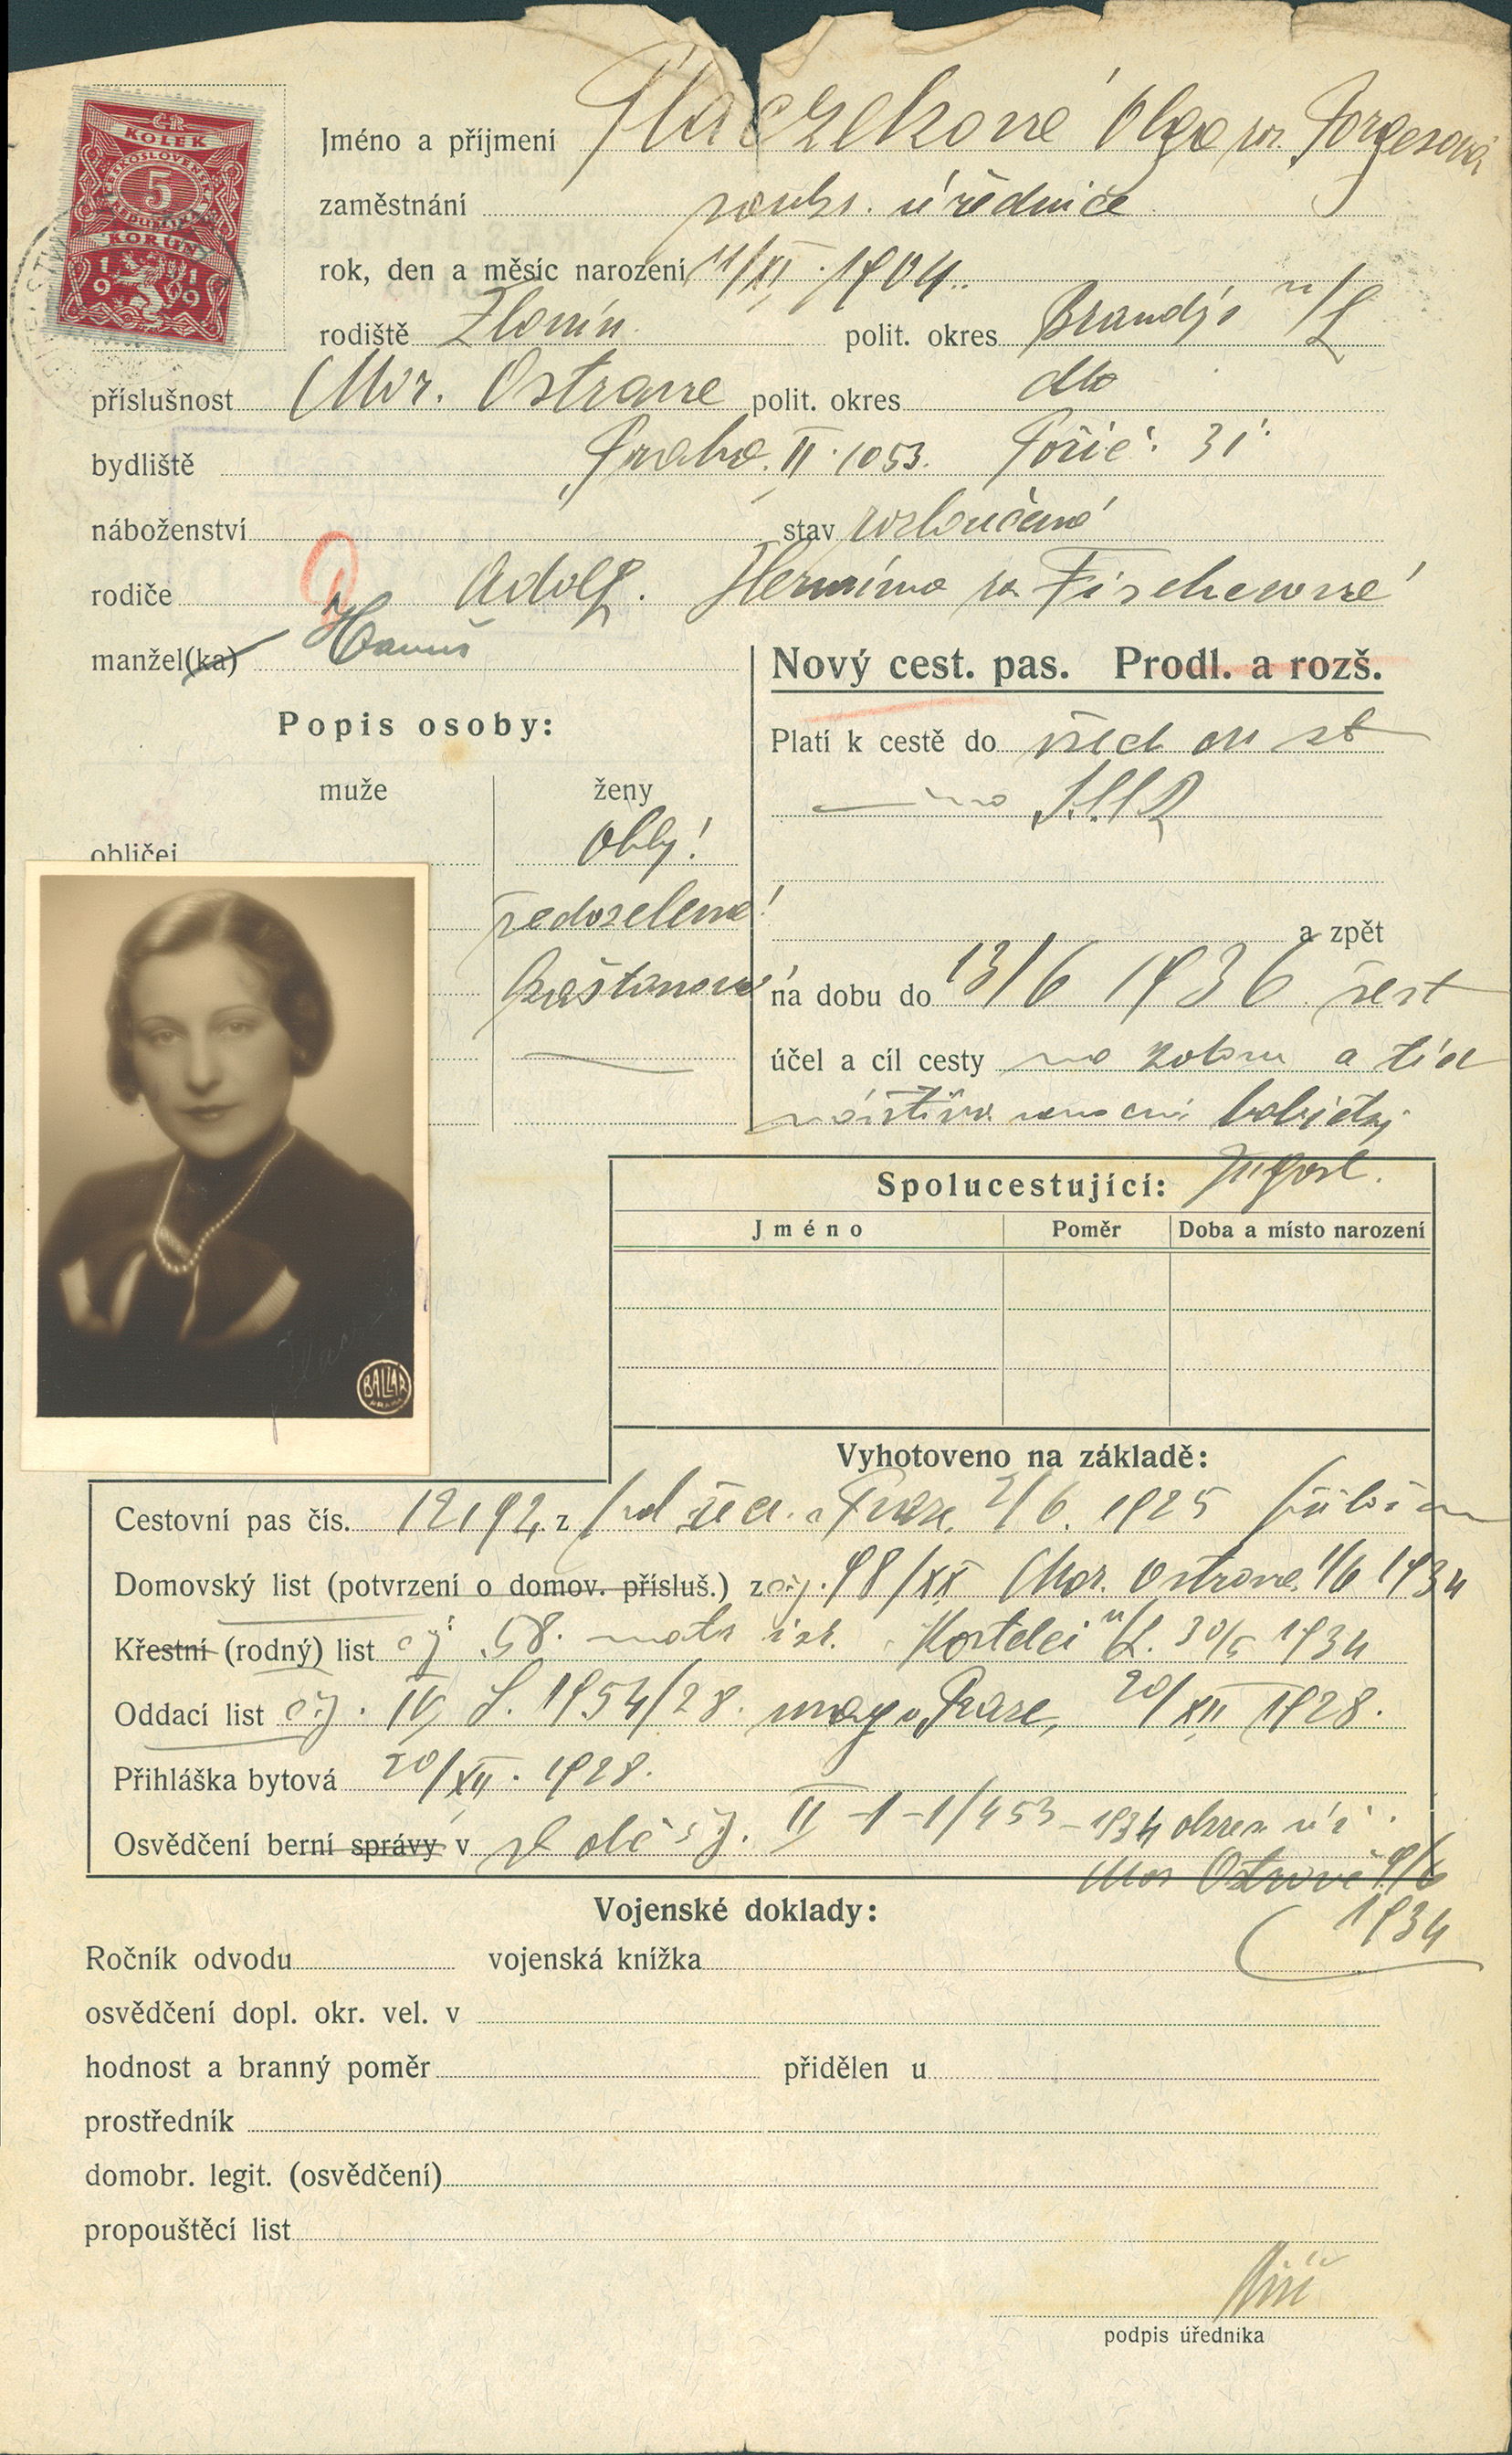 ČR
KOLEK
ČESKOSLOVENSKÁ
5
REPUBLIKA
KORUN
1919
Jméno a příjmení Placzekové Olga roz. Porgesová
zaměstnání soukr. úřednice
rok, den a měsíc narození 11/XI. 1904.
rodiště Zlonín polit. okres Brandýs n/L
příslušnost Mor. Ostrava polit. okres dto
bydliště Praha II. 1053. Poříč. 31
náboženství stav rozloučená
rodiče Adolf. Hermína roz. Fischerová
manžel(ka) Hanuš
Nový cest. pas. Prodl. a rozš.
Popis osoby:
Platí k cestě do všech
muže ženy
obličej oblý
šedozelené
a zpět
kaštanové
na dobu do 13/6 1936 šest
účel a cíl cesty na zotav a
Jugosl.
Spolucestující:
Jméno Poměr Doba a místo narození
BALZAR
PRAHA
Vyhotoveno na základě:
Cestovní pas čís. 12192 z Praze, 2/6. 1925
Domovský list (potvrzení o domov. přísluš.) z čj. 98/XX Mor. Ostrava 1/6 1934
Křestní (rodný) list čj 58. matr. isr. Kostelci n/L. 30/5 1934
Oddací list čj. IV, S. 1954/28. mag. v Praze, 20/XII 1928.
Přihláška bytová 20/XII. 1928.
Osvědčení berní správy v čj. II-1-1/453-1934 okres. úř.
Mor Ostravě 9/6
1934
Vojenské doklady:
Ročník odvodu vojenská knížka
osvědčení dopl. okr. vel. v
hodnost a branný poměr přidělen u
prostředník
domobr. legit. (osvědčení)
propouštěcí list
podpis úředníka